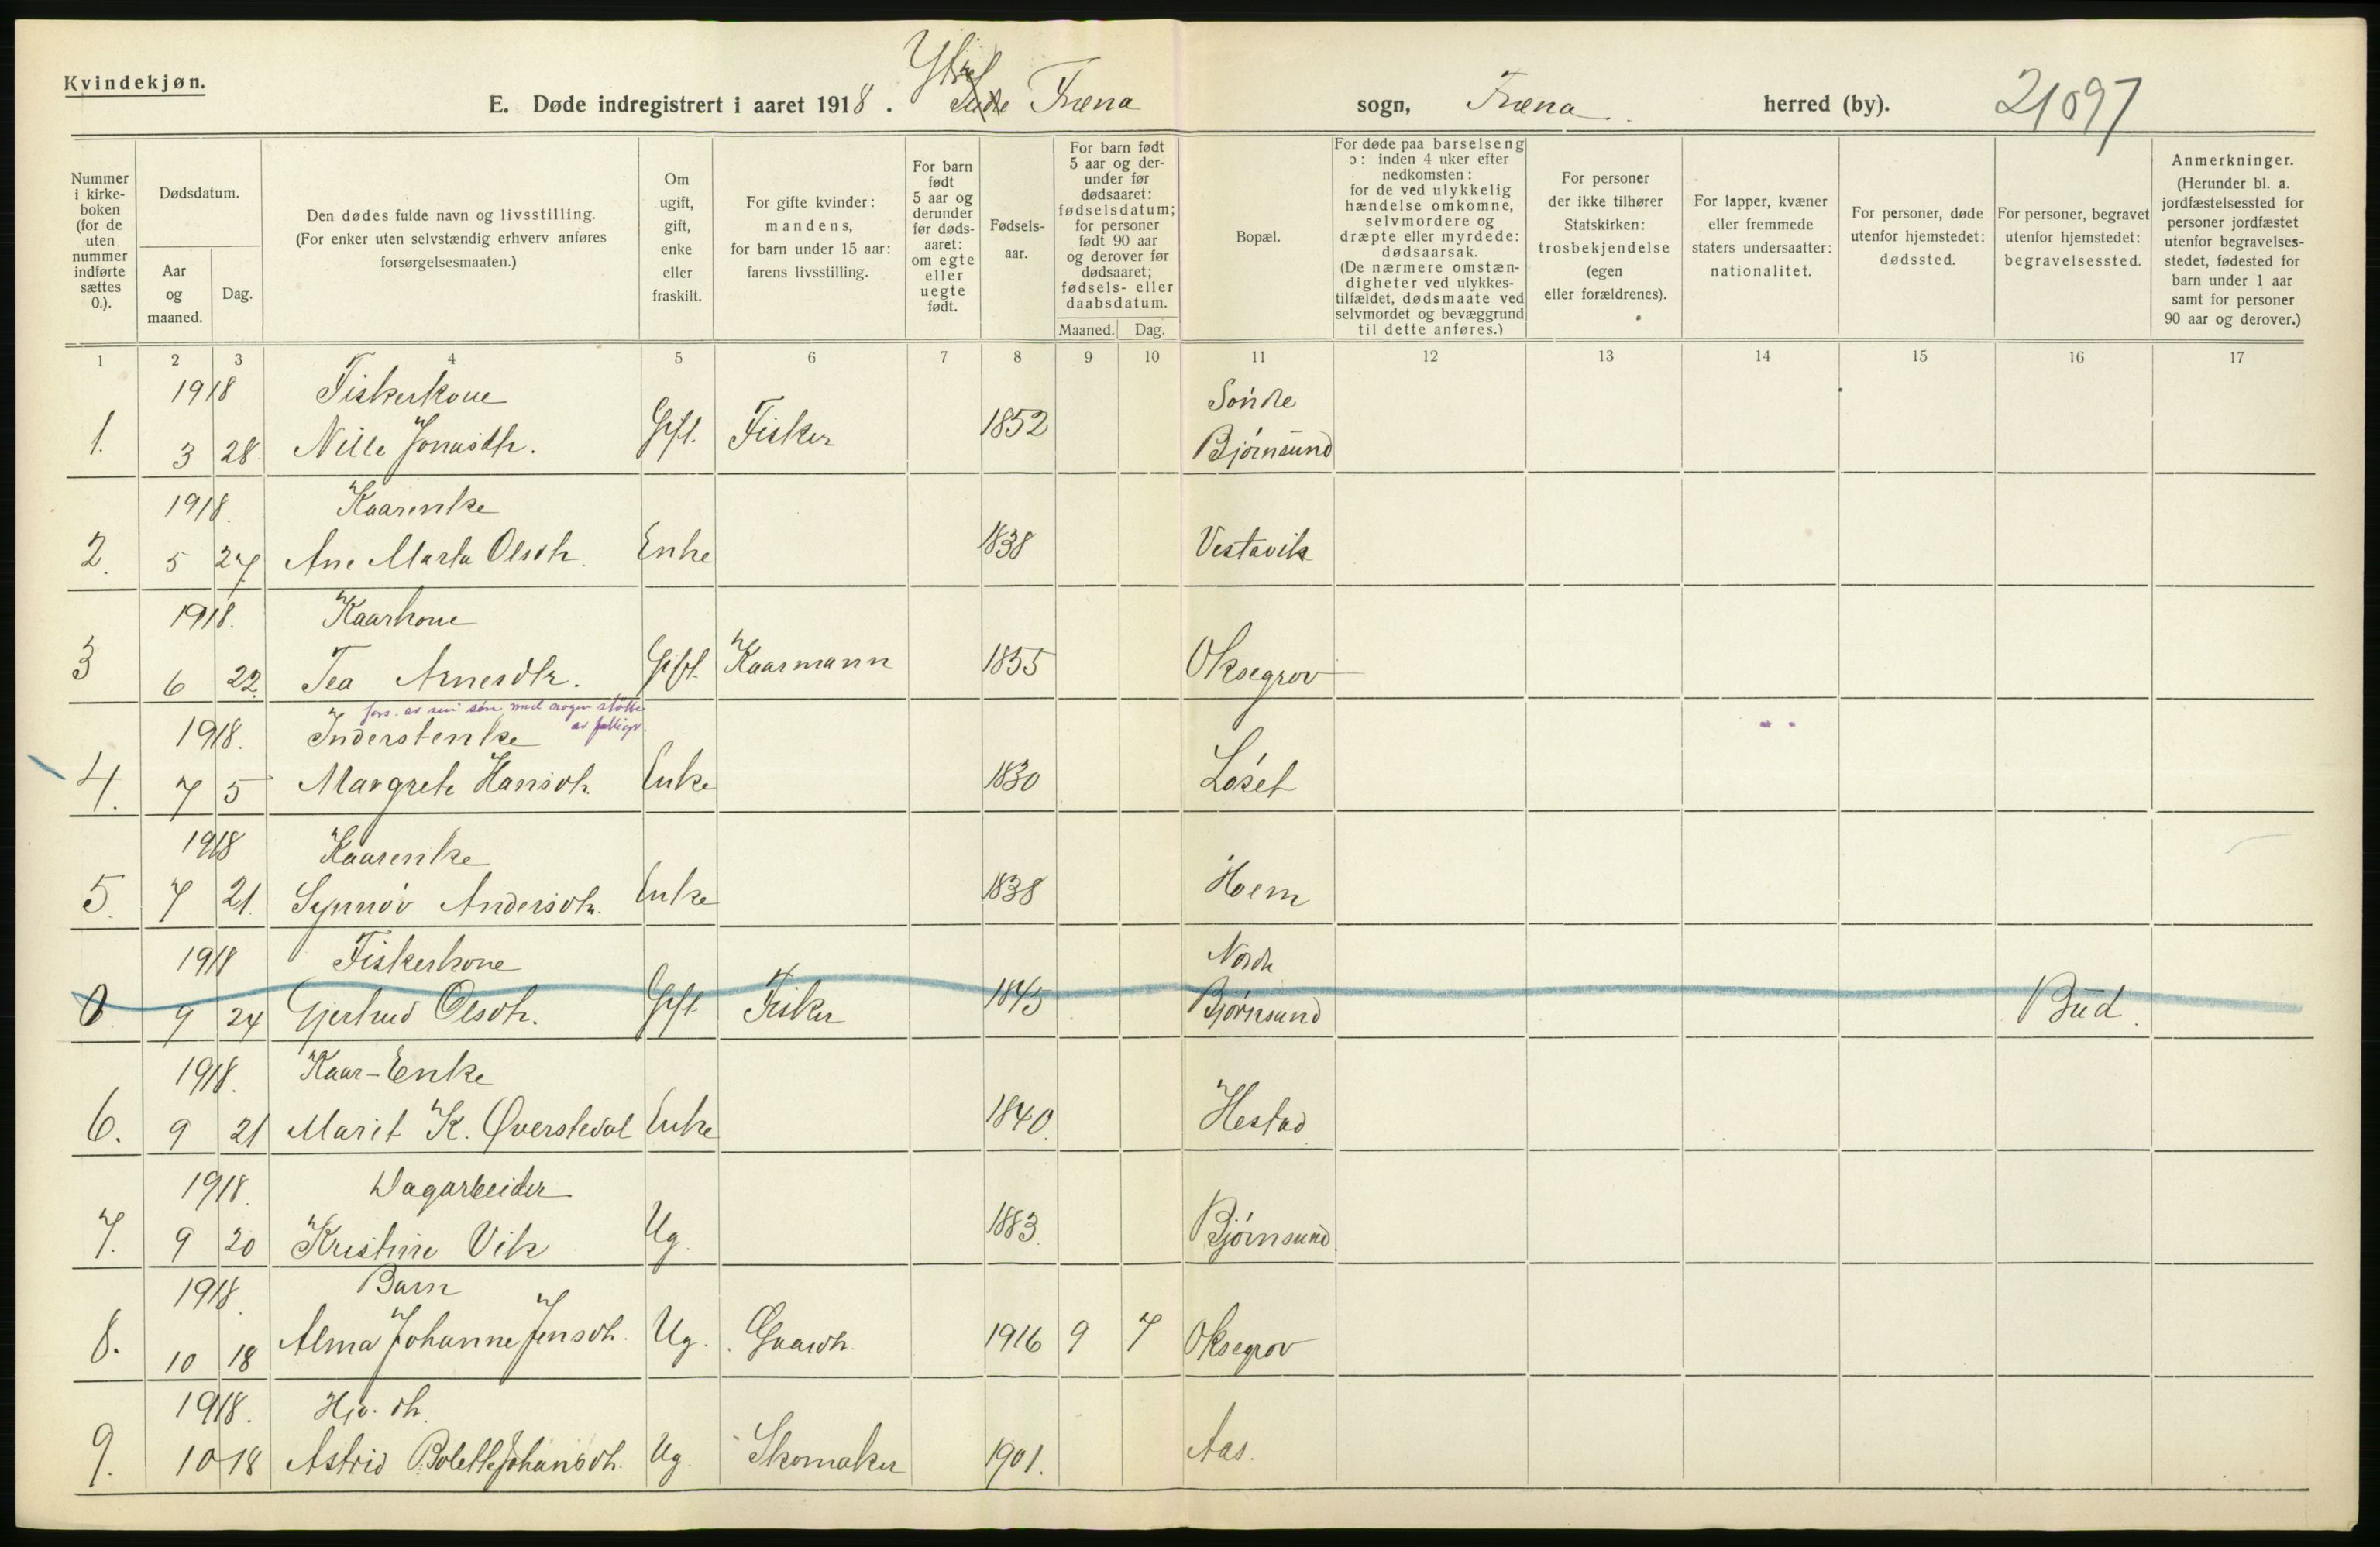 Kvindekjøn.
E. Døde indregistrert i aaret 1918. Ytre Fræna sogn, Fræna herred (by). 21097
Nummer i kirkeboken (for de uten nummer indførte sættes 0.).
Dødsdatum.
Aar og maaned.
Dag.
Den dødes fulde navn og livsstilling. (For enker uten selvstændig erhverv anføres forsørgelsesmaaten.)
Om ugift, gift, enke eller fraskilt.
For gifte kvinder: mandens, for barn under 15 aar: farens livsstilling.
For barn født 5 aar og derunder før dødsaaret: om egte eller uegte født.
Fødselsaar.
For barn født 5 aar og derunder før dødsaaret: fødselsdatum; for personer født 90 aar og derover før dødsaaret; fødsels- eller daabsdatum.
Maaned. Dag.
Bopæl.
For døde paa barselseng ɔ: inden 4 uker efter nedkomsten: for de ved ulykkelig hændelse omkomne, selvmordere og dræpte eller myrdede: dødsaarsak. (De nærmere omstændigheter ved ulykkestilfældet, dødsmaate ved selvmordet og bevæggrund til dette anføres.)
For personer der ikke tilhører Statskirken: trosbekjendelse (egen eller forældrenes).
For lapper, kvæner eller fremmede staters undersaatter: nationalitet.
For personer, døde utenfor hjemstedet: dødssted.
For personer, begravet utenfor hjemstedet: begravelsessted.
Anmerkninger. (Herunder bl. a. jordfæstelsessted for personer jordfæstet utenfor begravelsesstedet, fødested for barn under 1 aar samt for personer 90 aar og derover.)
1 2 3 4 5 6 7 8 9 10 11 12 13 14 15 16 17
1918 Fiskerkone Søndre
1. 3 28 Nille Jonasdtr. Gift. Fisker 1852 Bjørnsund
1918. Kaarenke
2. 5 27 Ane Marta Olsdtr. Enke 1838 Vestavik
1918. Kaarkone
3 6 22. Tea Arnesdtr. Gift. Kaarmann 1855 Oksegrov
fors. av sin søn med nogen støtte
av fattigv.
1918. Inderstenke
4. 7 5 Margrete Hansdtr. Enke 1830 Løset
1918 Kaarenke
5. 7 21. Synnøv Andersdtr. Enke 1838 Hoem
1918 Fiskerkone Nordre
0 9 24 Gjertrud Olsdtr. Gift Fisker 1845 Bjørnsund Bud.
1918. Kaar-Enke
6. 9 21 Marit K. Øverstedal Enke 1840. Hestad
1918. Dagarbeider
7. 9 20 Kristine Vik Ug. 1883. Bjørnsund
1918. Barn
8. 10 18 Alma Johanne Jensdtr. Ug. Gaardb. 1916 9 7 Oksegrov
1918. Hjv. dtr.
9. 10 18 Astrid Bolette Johansdtr. Ug. Skomaker 1901. Aas.